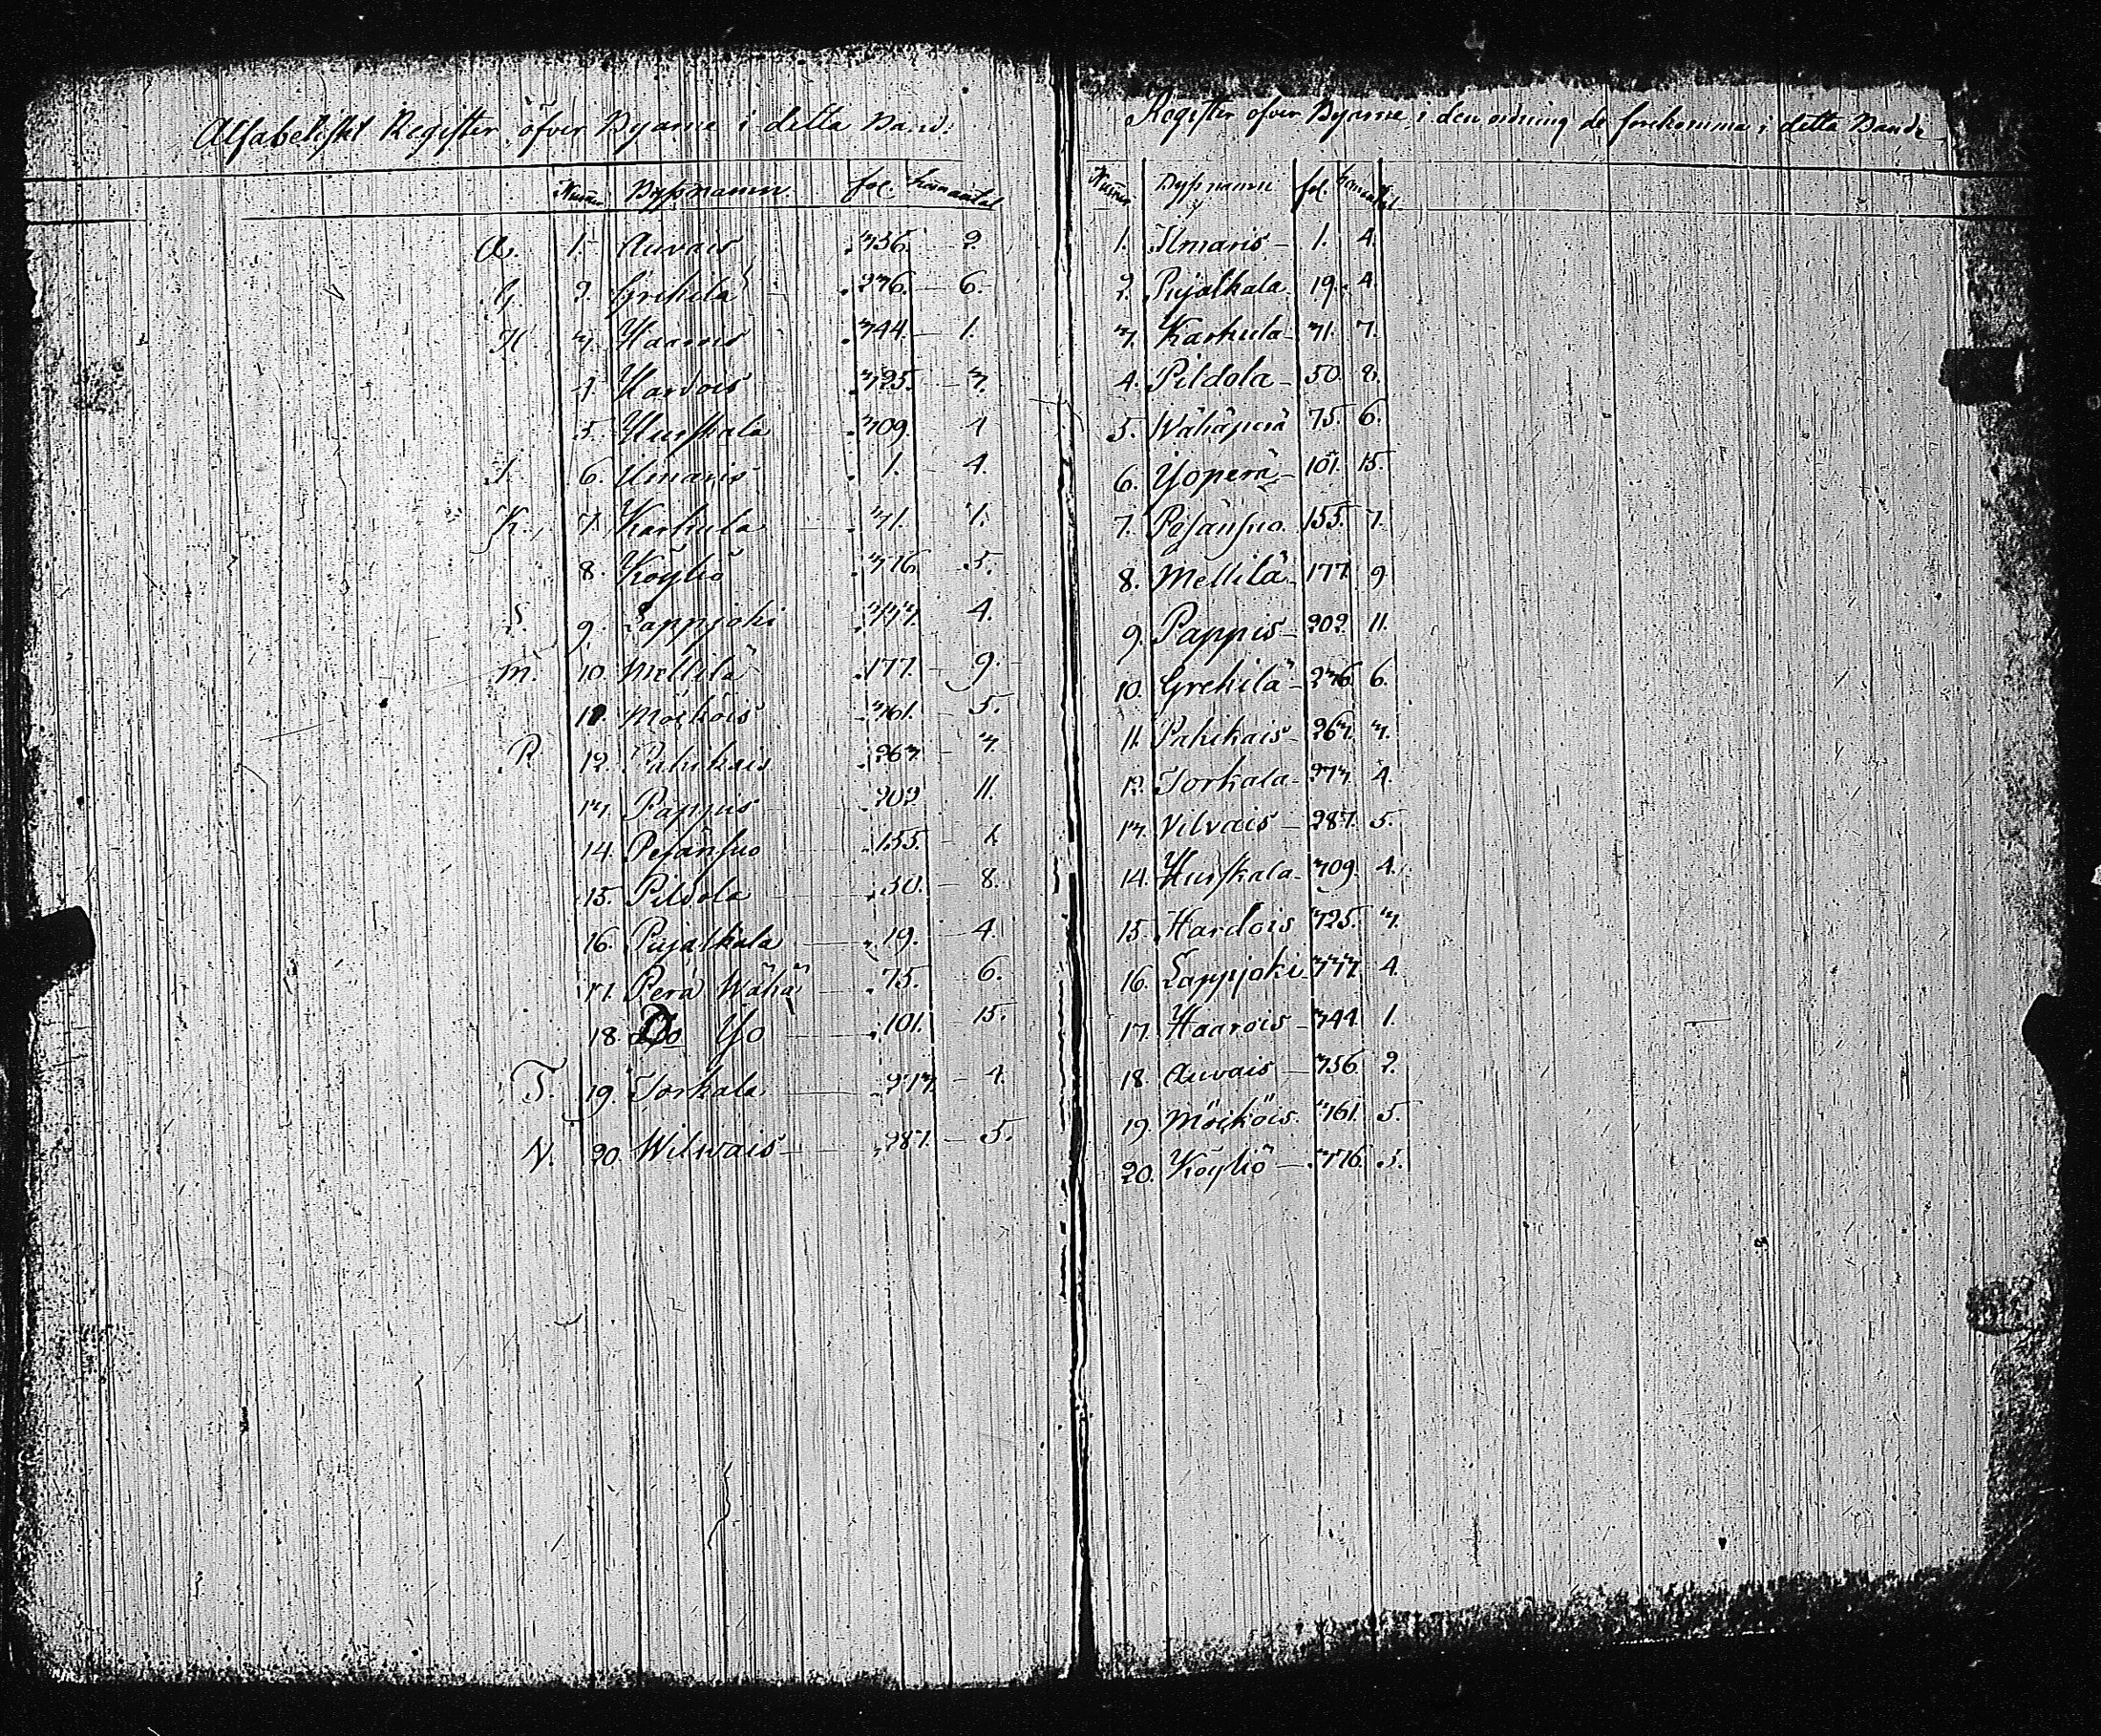 Alfabetiskt Register öfver Byarne i detta Band.
Numer Bysnamn fol. Hemantal
A. 1. Auvais 356. 2
G. 2. Grekilä 236. 6.
H 3. Haarois 344. 1.
4. Hardois 325. 3.
5. Hurskala 309 4
I. 6. Ilmaris 1. 4.
K. 7. Karhula 31. 7.
8. Köyliö 376 5.
L. 9. Lappjoki 333. 4.
M. 10. Mellilä 177. 9.
11. Möikois 361. 5.
P. 12. Pahikais 263 3
13. Pappis 202 11.
14. Pesänsuo 155. 7.
15. Pildola 50. 8.
16. Pujalkala 19. 4.
17. Perä Wähä 75. 6.
18. Do Yo 101. 15.
T. 19. Torkala 273. 4.
V. 20. Wilwais 287. 5.
Register öfver Byarne i den ordning de förekomma i detta Band
Numer Bysnamn fol. Hemantal
1. Ilmaris 1. 4.
2. Pujalkala 19. 4.
3. Karhula 31. 7.
4. Pildola 50. 8.
5. Wähäperä 75. 6.
6. Yoperä 101. 15.
7. Pesänsuo 155. 7.
8. Mellilä 177. 9
9. Pappis 202. 11.
10. Grekilä 236 6.
11. Pahikais 263. 3.
12. Torkala 273. 4.
13. Vilvais 287. 5.
14. Hurskala 309. 4.
15. Hardois 325. 3.
16. Lappjoki 333. 4.
17. Haarois 344. 1.
18. Auvais 356 2.
19. Möikois 361. 5.
20. Köyliö 376. 5.